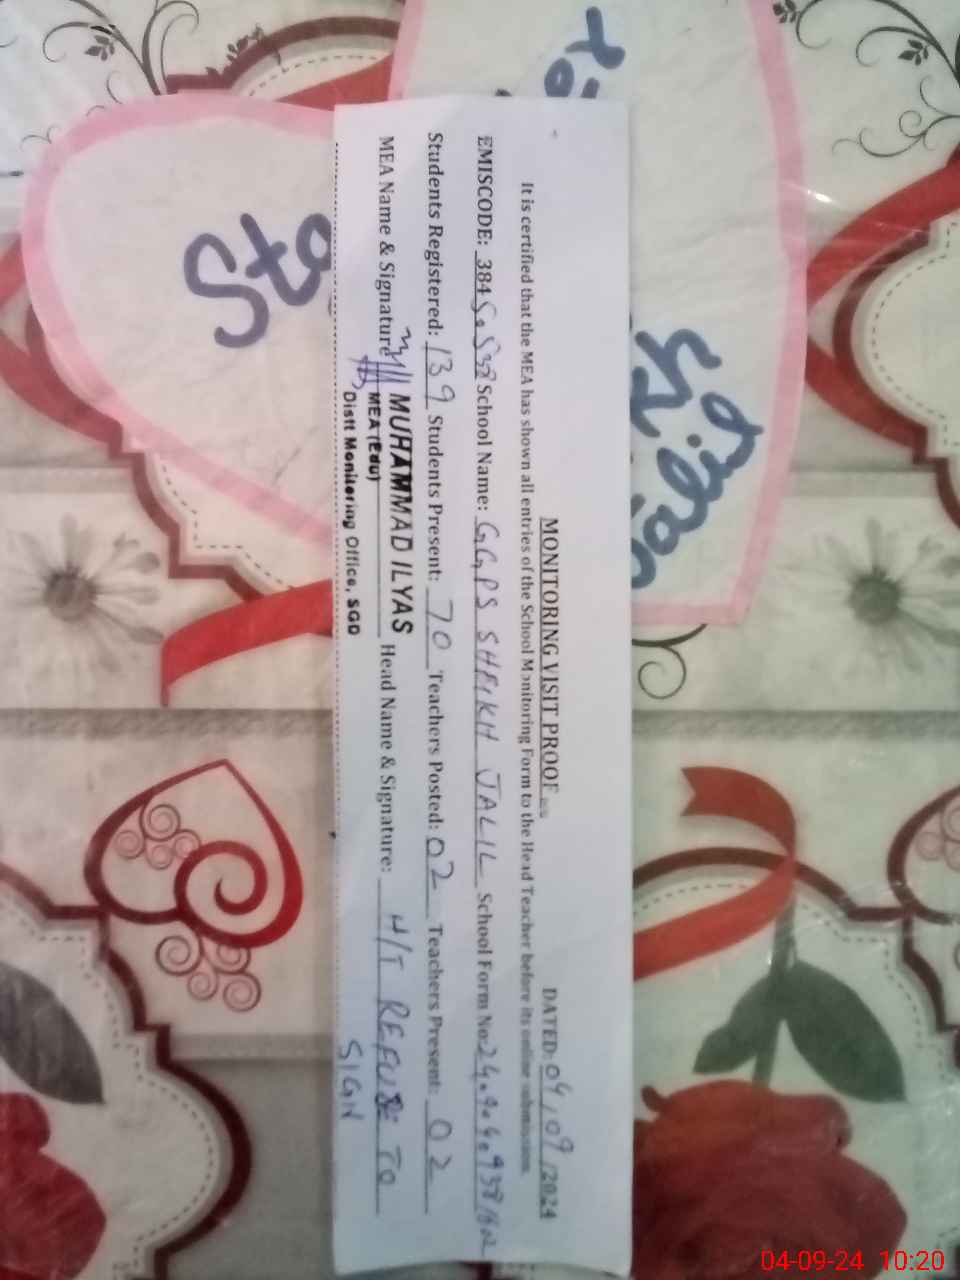 MONITORING VISIT PROOF
DATED: 04/09/2024
It is certified that the MEA has shown all entries of the School Monitoring Form to the Head Teacher before its online submission.
EMISCODE: 384 School Name: GGPS SHEIKH JALIL School Form No:
Students Registered: 139 Students Present: 70 Teachers Posted: 02 Teachers Present: 02
MEA Name & Signature MUHAMMAD ILYAS Head Name & Signature: H/T REFUSE TO
MEA (Edu) SIGN
Distt Monitoring Office, SGD
04-09-24 10:20